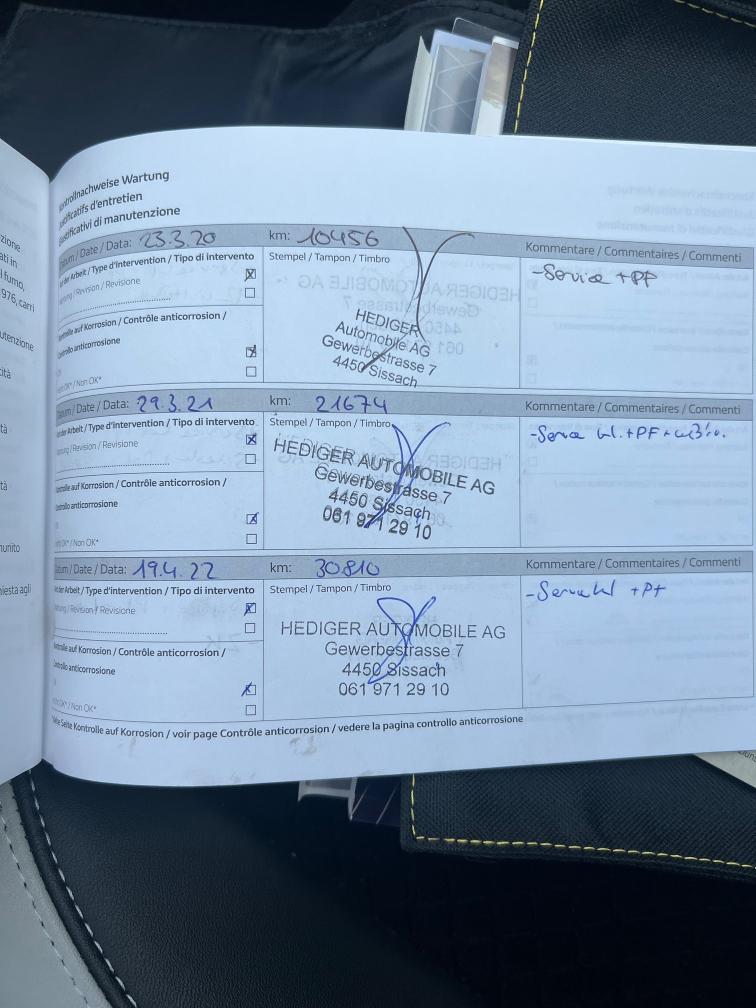 zione
ati in
fumo,
976, carri
utenzione
cità
tà
tà
munito
hiesta agli
Kontrollnachweise Wartung
Justificatifs d'entretien
Giustificativi di manutenzione
Datum / Date / Data: 23.3.20 km: 10456 Kommentare / Commentaires / Commenti
Art der Arbeit / Type d'intervention / Tipo di intervento Stempel / Tampon / Timbro -Service + PF
Wartung / Revision / Revisione
Kontrolle auf Korrosion / Contrôle anticorrosion /
Controllo anticorrosione
Nicht OK* / Non OK*
HEDIGER
Automobile AG
Gewerbestrasse 7
4450 Sissach
Datum / Date / Data: 29.3.21 km: 21674 Kommentare / Commentaires / Commenti
Art der Arbeit / Type d'intervention / Tipo di intervento Stempel / Tampon / Timbro -Service kl. + PF +
Wartung / Revision / Revisione
Kontrolle auf Korrosion / Contrôle anticorrosion /
Controllo anticorrosione
Nicht OK* / Non OK*
HEDIGER AUTOMOBILE AG
Gewerbestrasse 7
4450 Sissach
061 971 29 10
Datum / Date / Data: 19.4.22 km: 30810 Kommentare / Commentaires / Commenti
Art der Arbeit / Type d'intervention / Tipo di intervento Stempel / Tampon / Timbro -Service kl + PF
Wartung / Revision / Revisione
Kontrolle auf Korrosion / Contrôle anticorrosion /
Controllo anticorrosione
Nicht OK* / Non OK*
HEDIGER AUTOMOBILE AG
Gewerbestrasse 7
4450 Sissach
061 971 29 10
Seite Kontrolle auf Korrosion / voir page Contrôle anticorrosion / vedere la pagina controllo anticorrosione